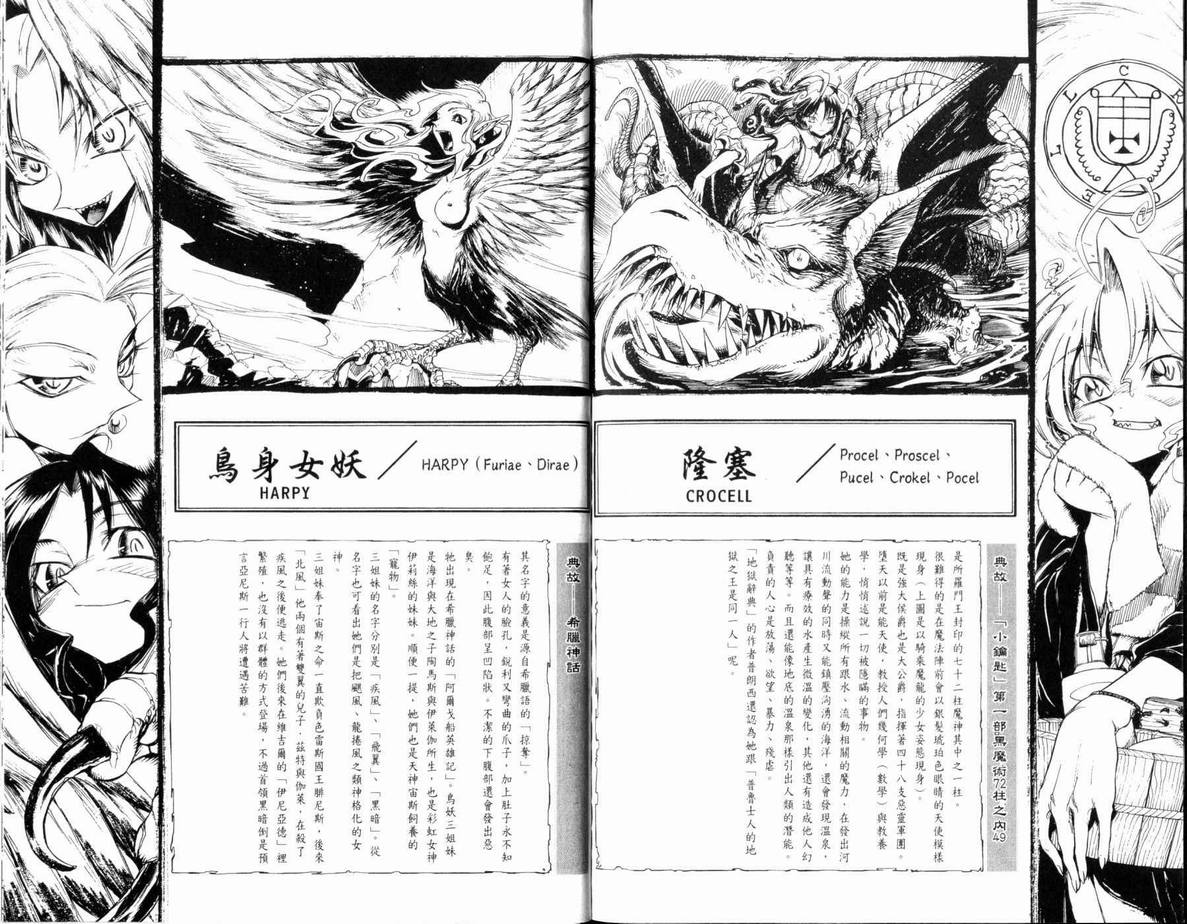 隆塞
CROCELL
Procel、Proscel、
Pucel、Crokel、Pocel
典故——「小鑰匙」第一部黑魔術72柱之內49
是所羅門王封印的七十二柱魔神其中之一柱。
很難得的是在魔法陣前會以銀髮琥珀色眼睛的天使模樣
現身(上圖是以騎乘魔龍的少女姿態現身)。
既是強大侯爵也是大公爵，指揮著四十八支惡靈軍團。
墮天以前是能天使，教授人們幾何學(數學)與教養
學，悄悄述說一切被隱瞞的事物。
她的能力是操縱所有跟水、流動相關的魔力，在發出河
川流動聲的同時又能鎮壓洶湧的海洋，還會發現溫泉，
讓具有療效的水產生微溫的變化，其他還有造成他人幻
聽等等。而且還能像地底的溫泉那樣引出人類的潛能。
負責的人心是放蕩、欲望、暴力、殘虐。
「地獄辭典」的作者普朗西還認為她跟「普魯士人的地
獄之王是同一人」呢。
鳥身女妖
HARPY
HARPY(Furiae、Dirae)
典故——希臘神話
其名字的意義是源自希臘語的「掠奪」。
有著女人的臉孔，銳利又彎曲的爪子，加上肚子永不知
飽足，因此腹部呈凹陷狀。不潔的下腹部還會發出惡
臭。
牠出現在希臘神話的「阿爾戈船英雄記」。鳥妖三姐妹
是海洋與大地之子陶馬斯與伊萊伽所生，也是彩虹女神
伊莉絲的妹妹。順便一提，她們也是天神宙斯飼養的
「寵物」。
三姐妹的名字分別是「疾風」、「飛翼」、「黑暗」。從
名字也可看出她們是把颶風、龍捲風之類神格化的女
神。
三姐妹奉了宙斯之命一直欺負色雷斯國王腓尼斯，後來
「北風」他兩個有著雙翼的兒子，茲特與伽萊，在殺了
疾風之後便逃走。她們後來在維吉爾的「伊尼亞德」裡
繁殖，也沒有以群體的方式登場，不過首領黑暗倒是預
言亞尼斯一行人將遭遇苦難。